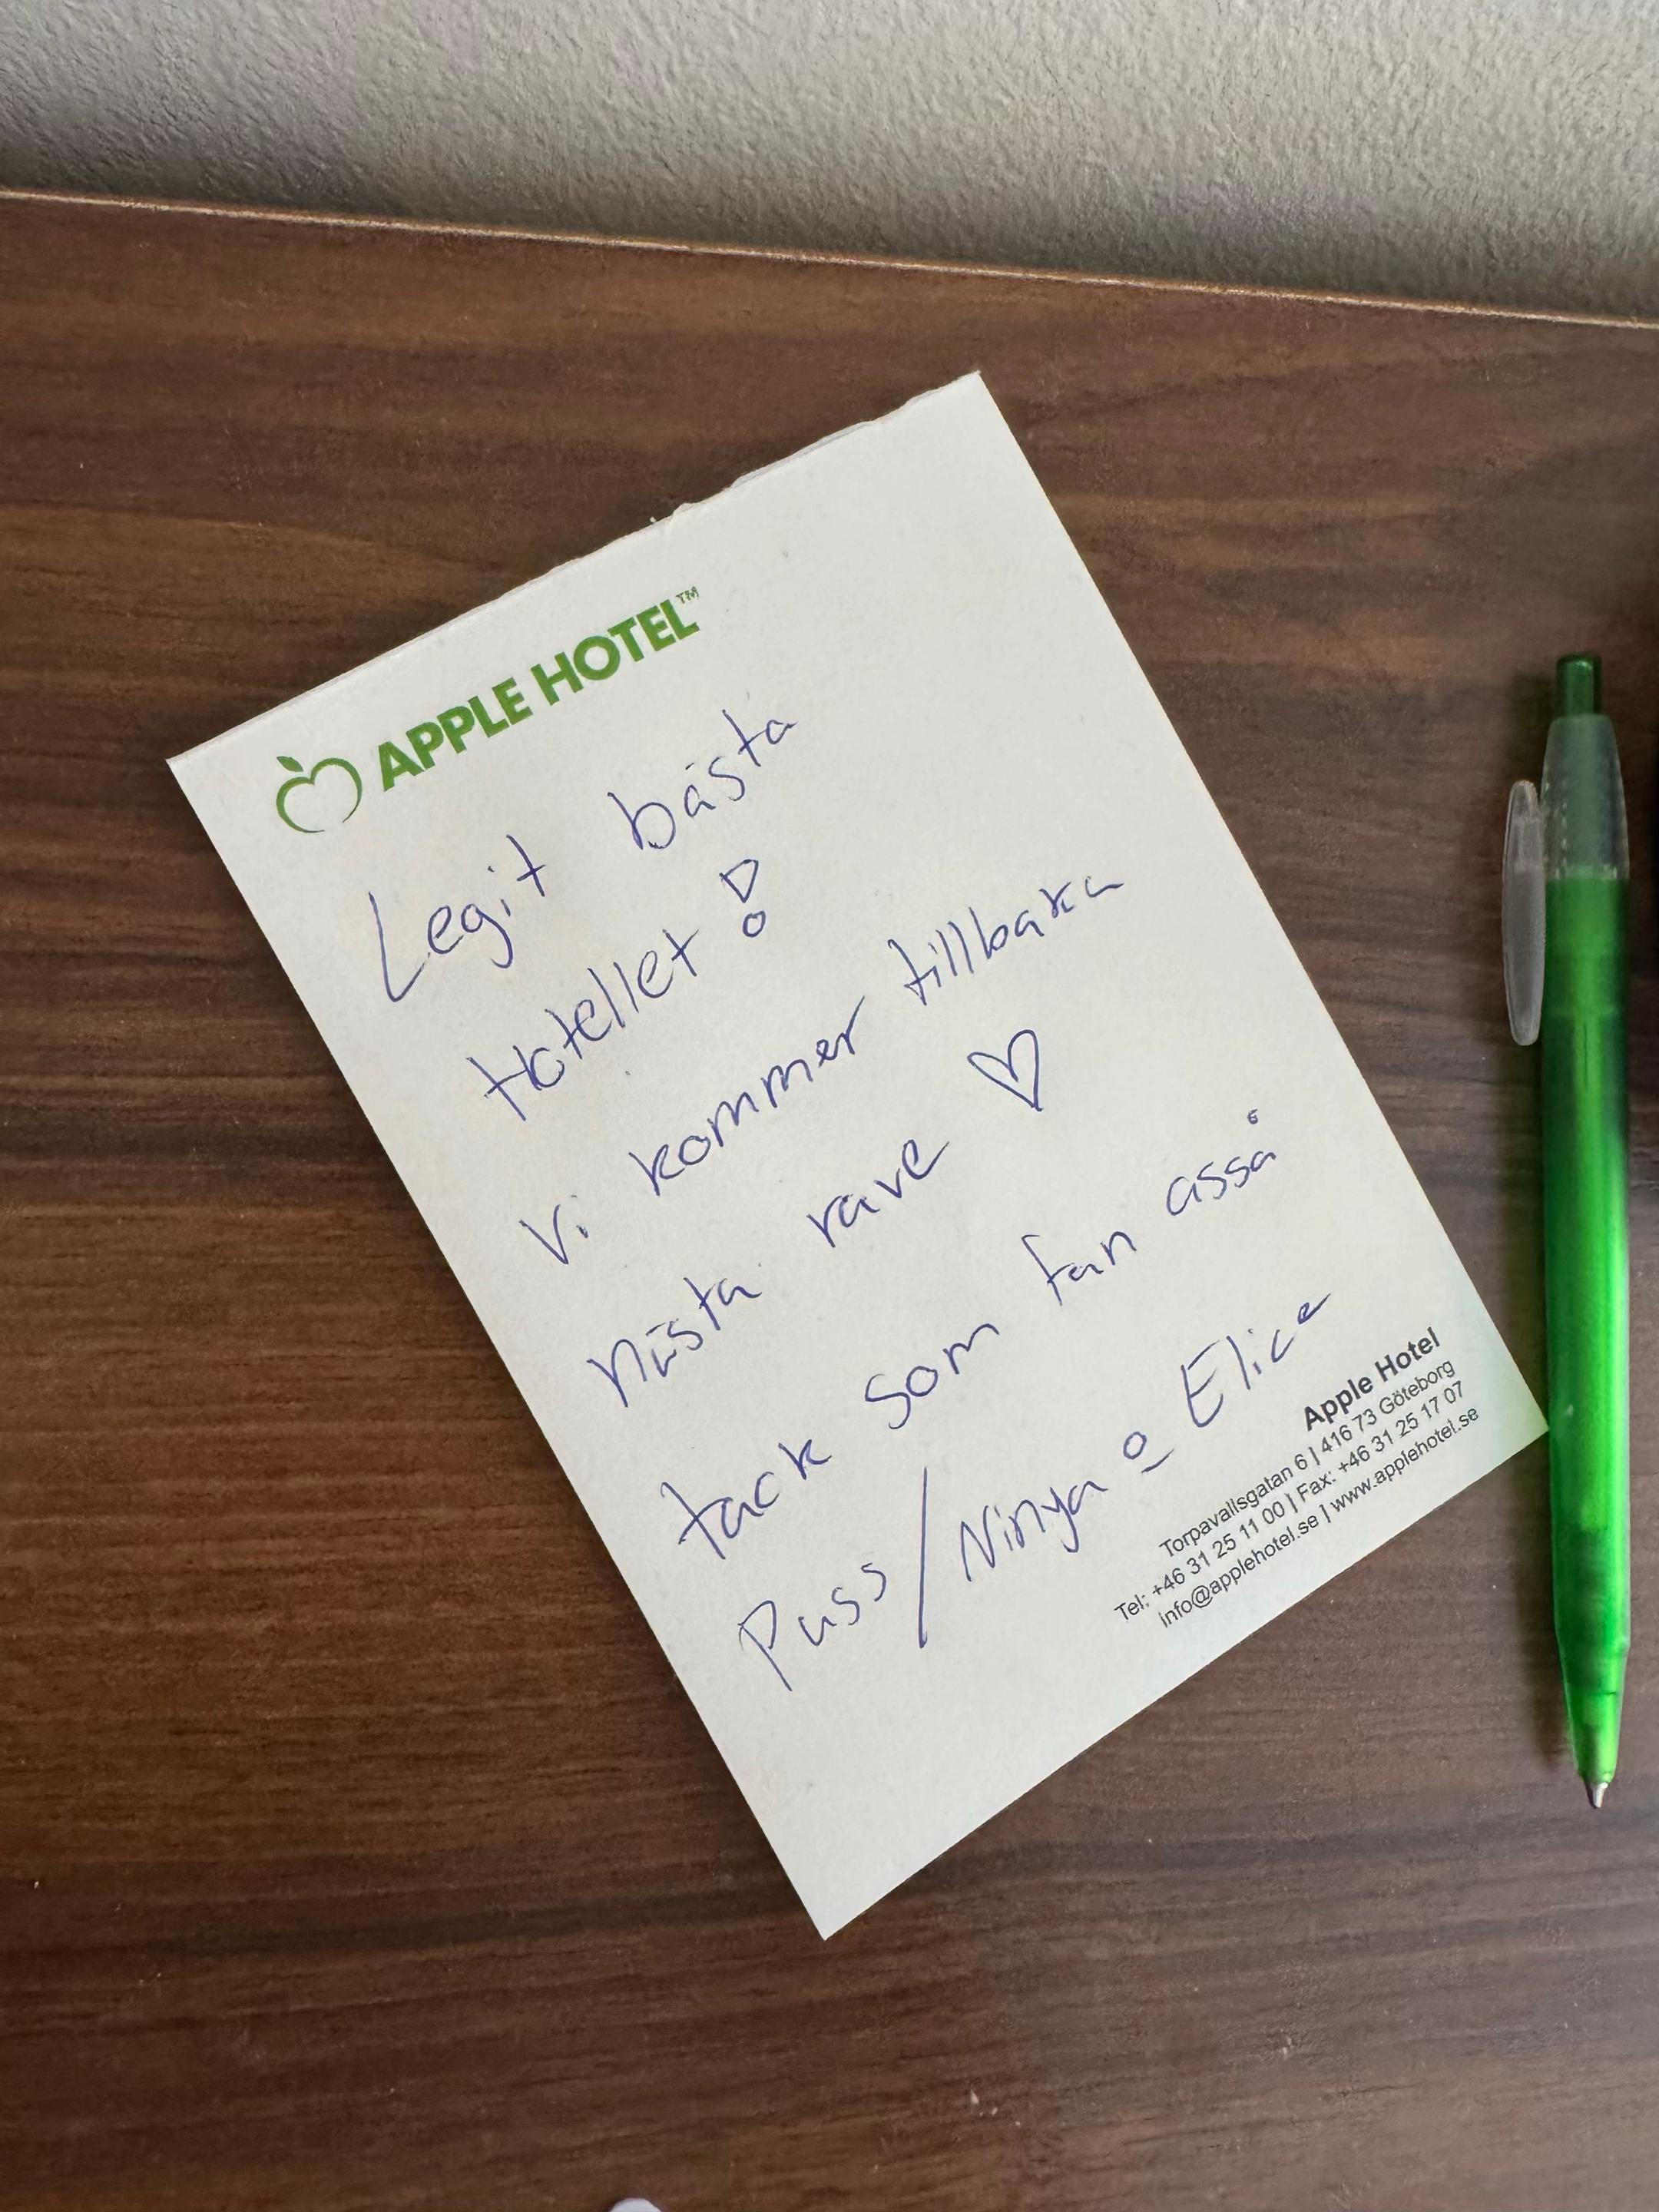 APPLE HOTEL™
Legit bästa
Hotellet!
Vi kommer tillbaka
nästa rave ♡
tack som fan asså
Puss/Ninya o Elice
Apple Hotel
Torpavallsgatan 6 | 416 73 Göteborg
Tel: +46 31 25 11 00 | Fax: +46 31 25 17 07
info@applehotel.se | www.applehotel.se